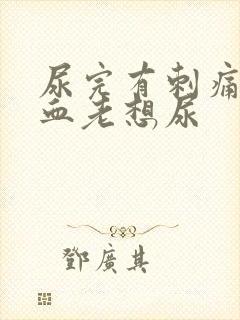 尿完有刺痛
血老想尿
鄧廣其